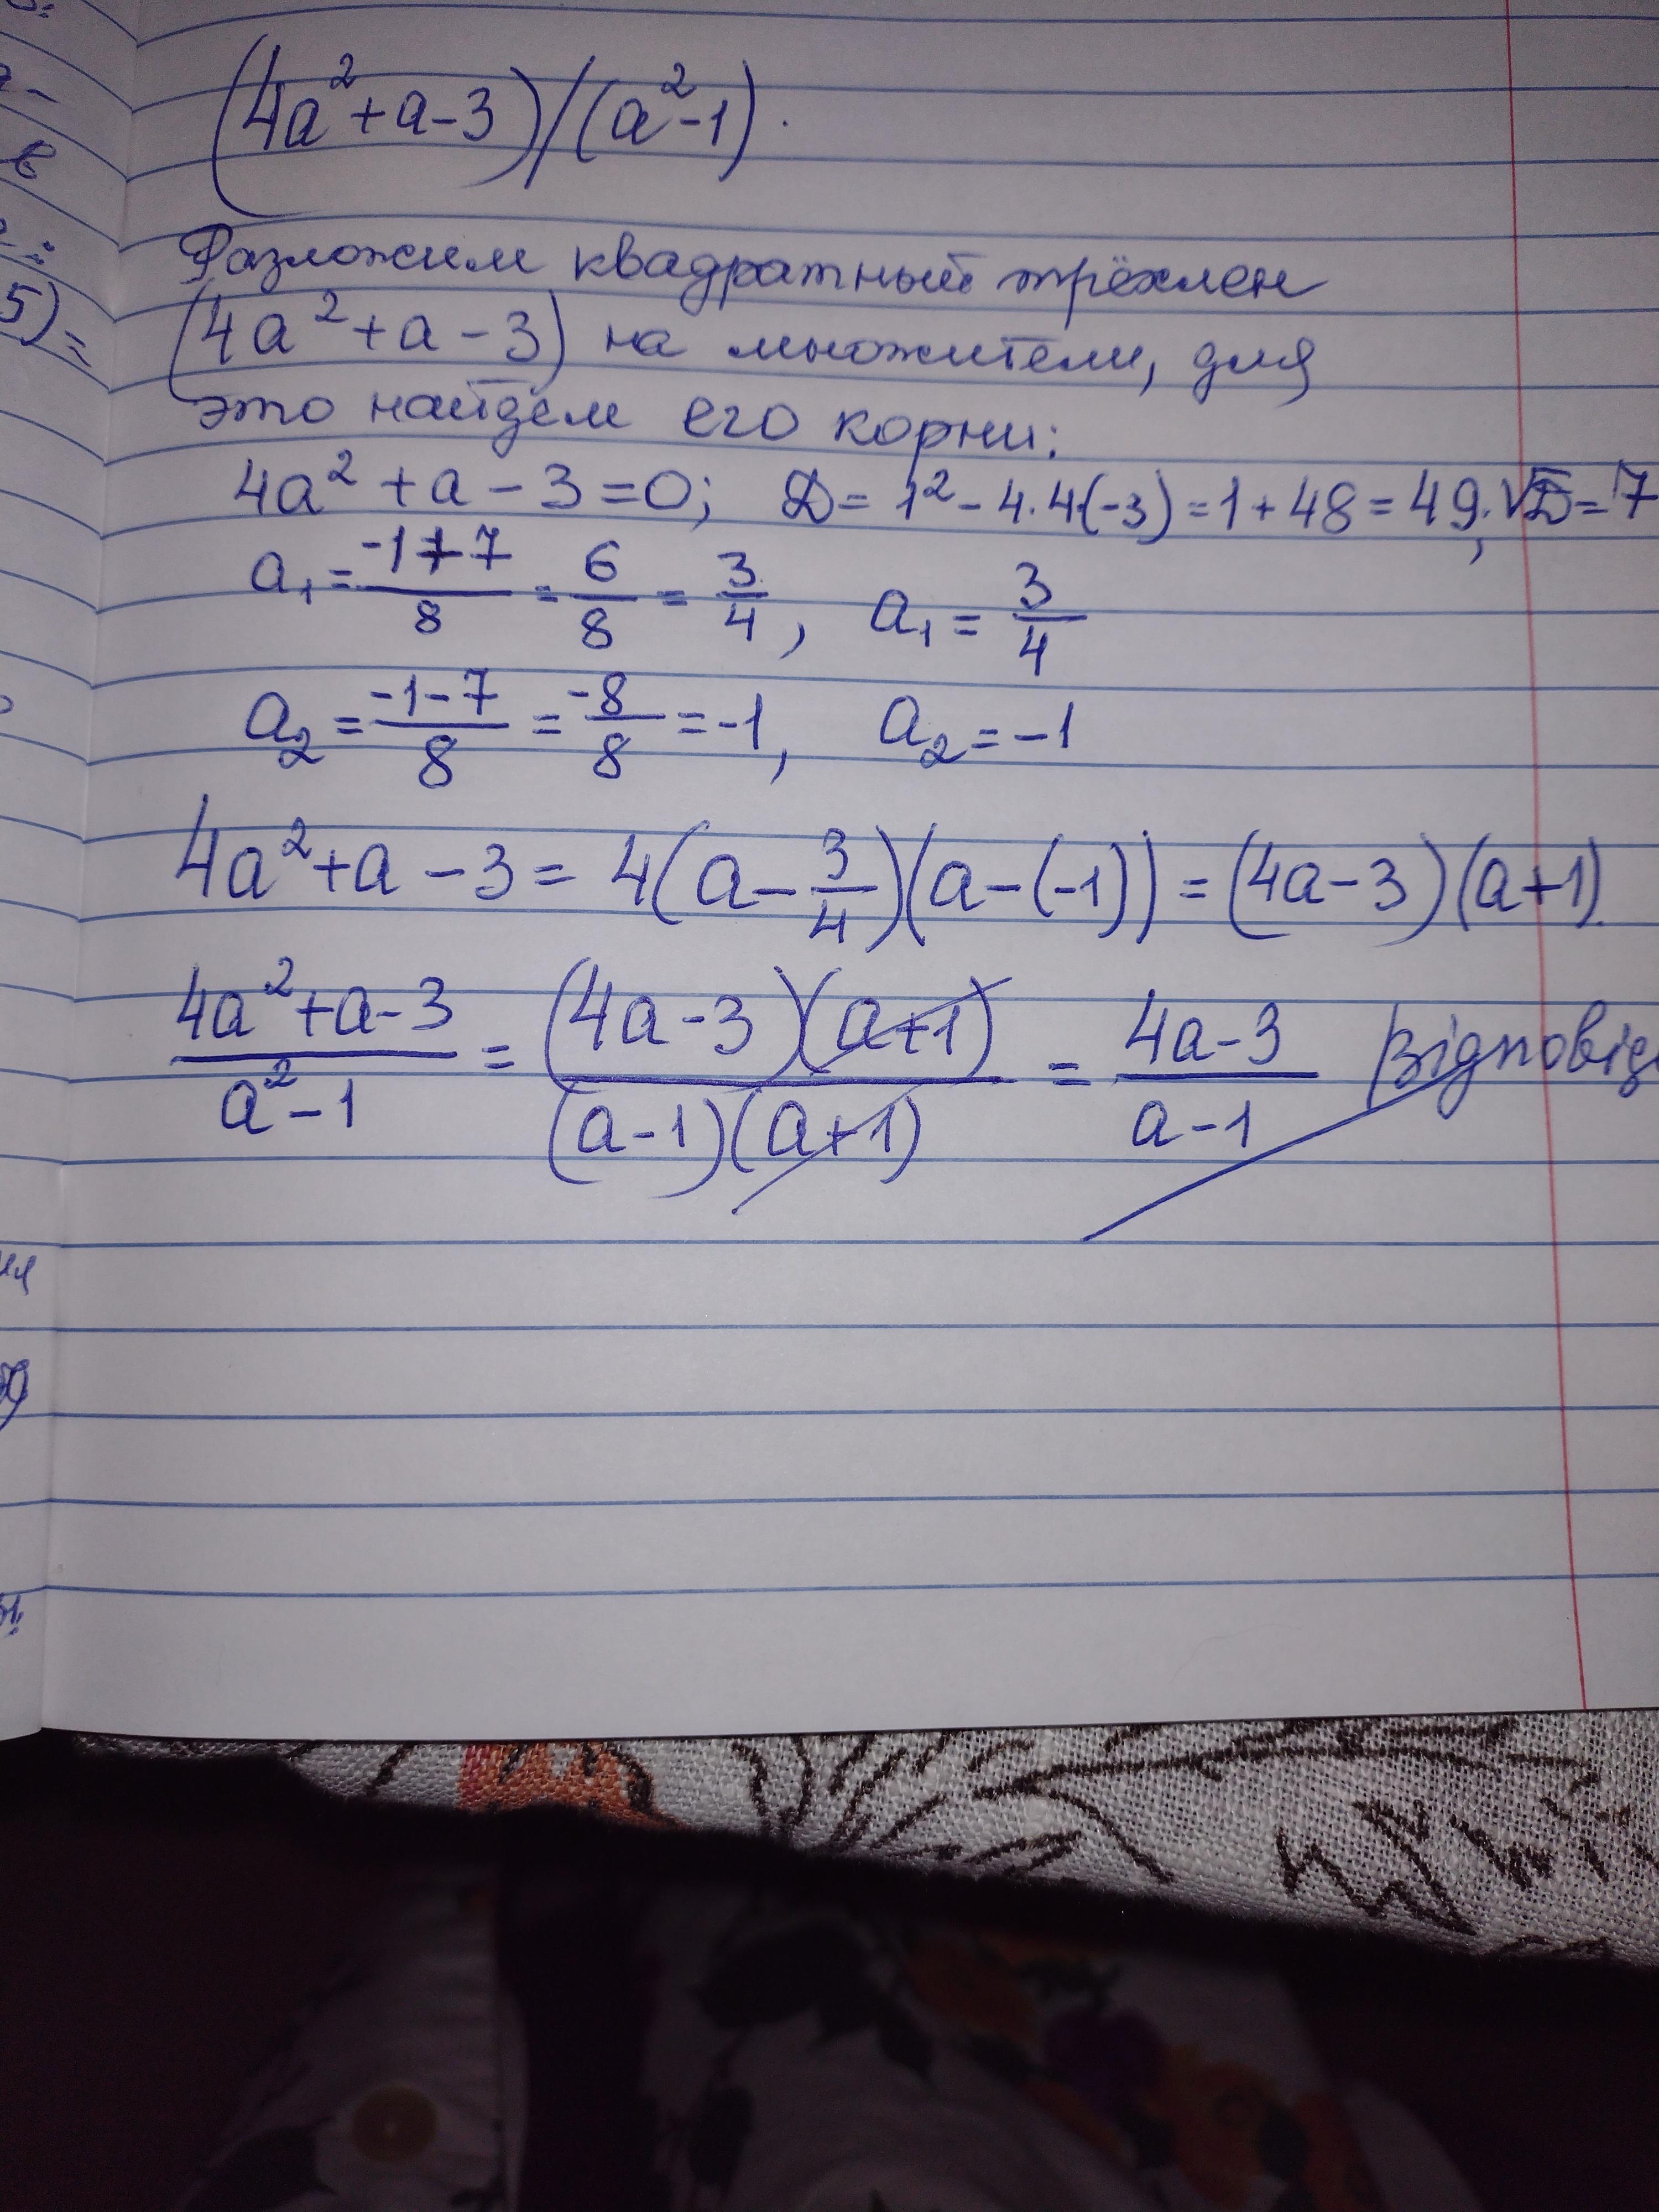 (4a²+a-3)/(a²-1).
Разложим квадратный трёхлен
(4a²+a-3) на множители, для
это найдём его корни:
4a²+a-3=0; D=1²-4·4(-3)=1+48=49, √D=7
a₁=(-1+7)/8=6/8=3/4, a₁=3/4
a₂=(-1-7)/8=-8/8=-1, a₂=-1
4a²+a-3=4(a-3/4)(a-(-1))=(4a-3)(a+1)
(4a²+a-3)/(a²-1)=((4a-3)(a+1))/((a-1)(a+1))=(4a-3)/(a-1) відповідь
5)=